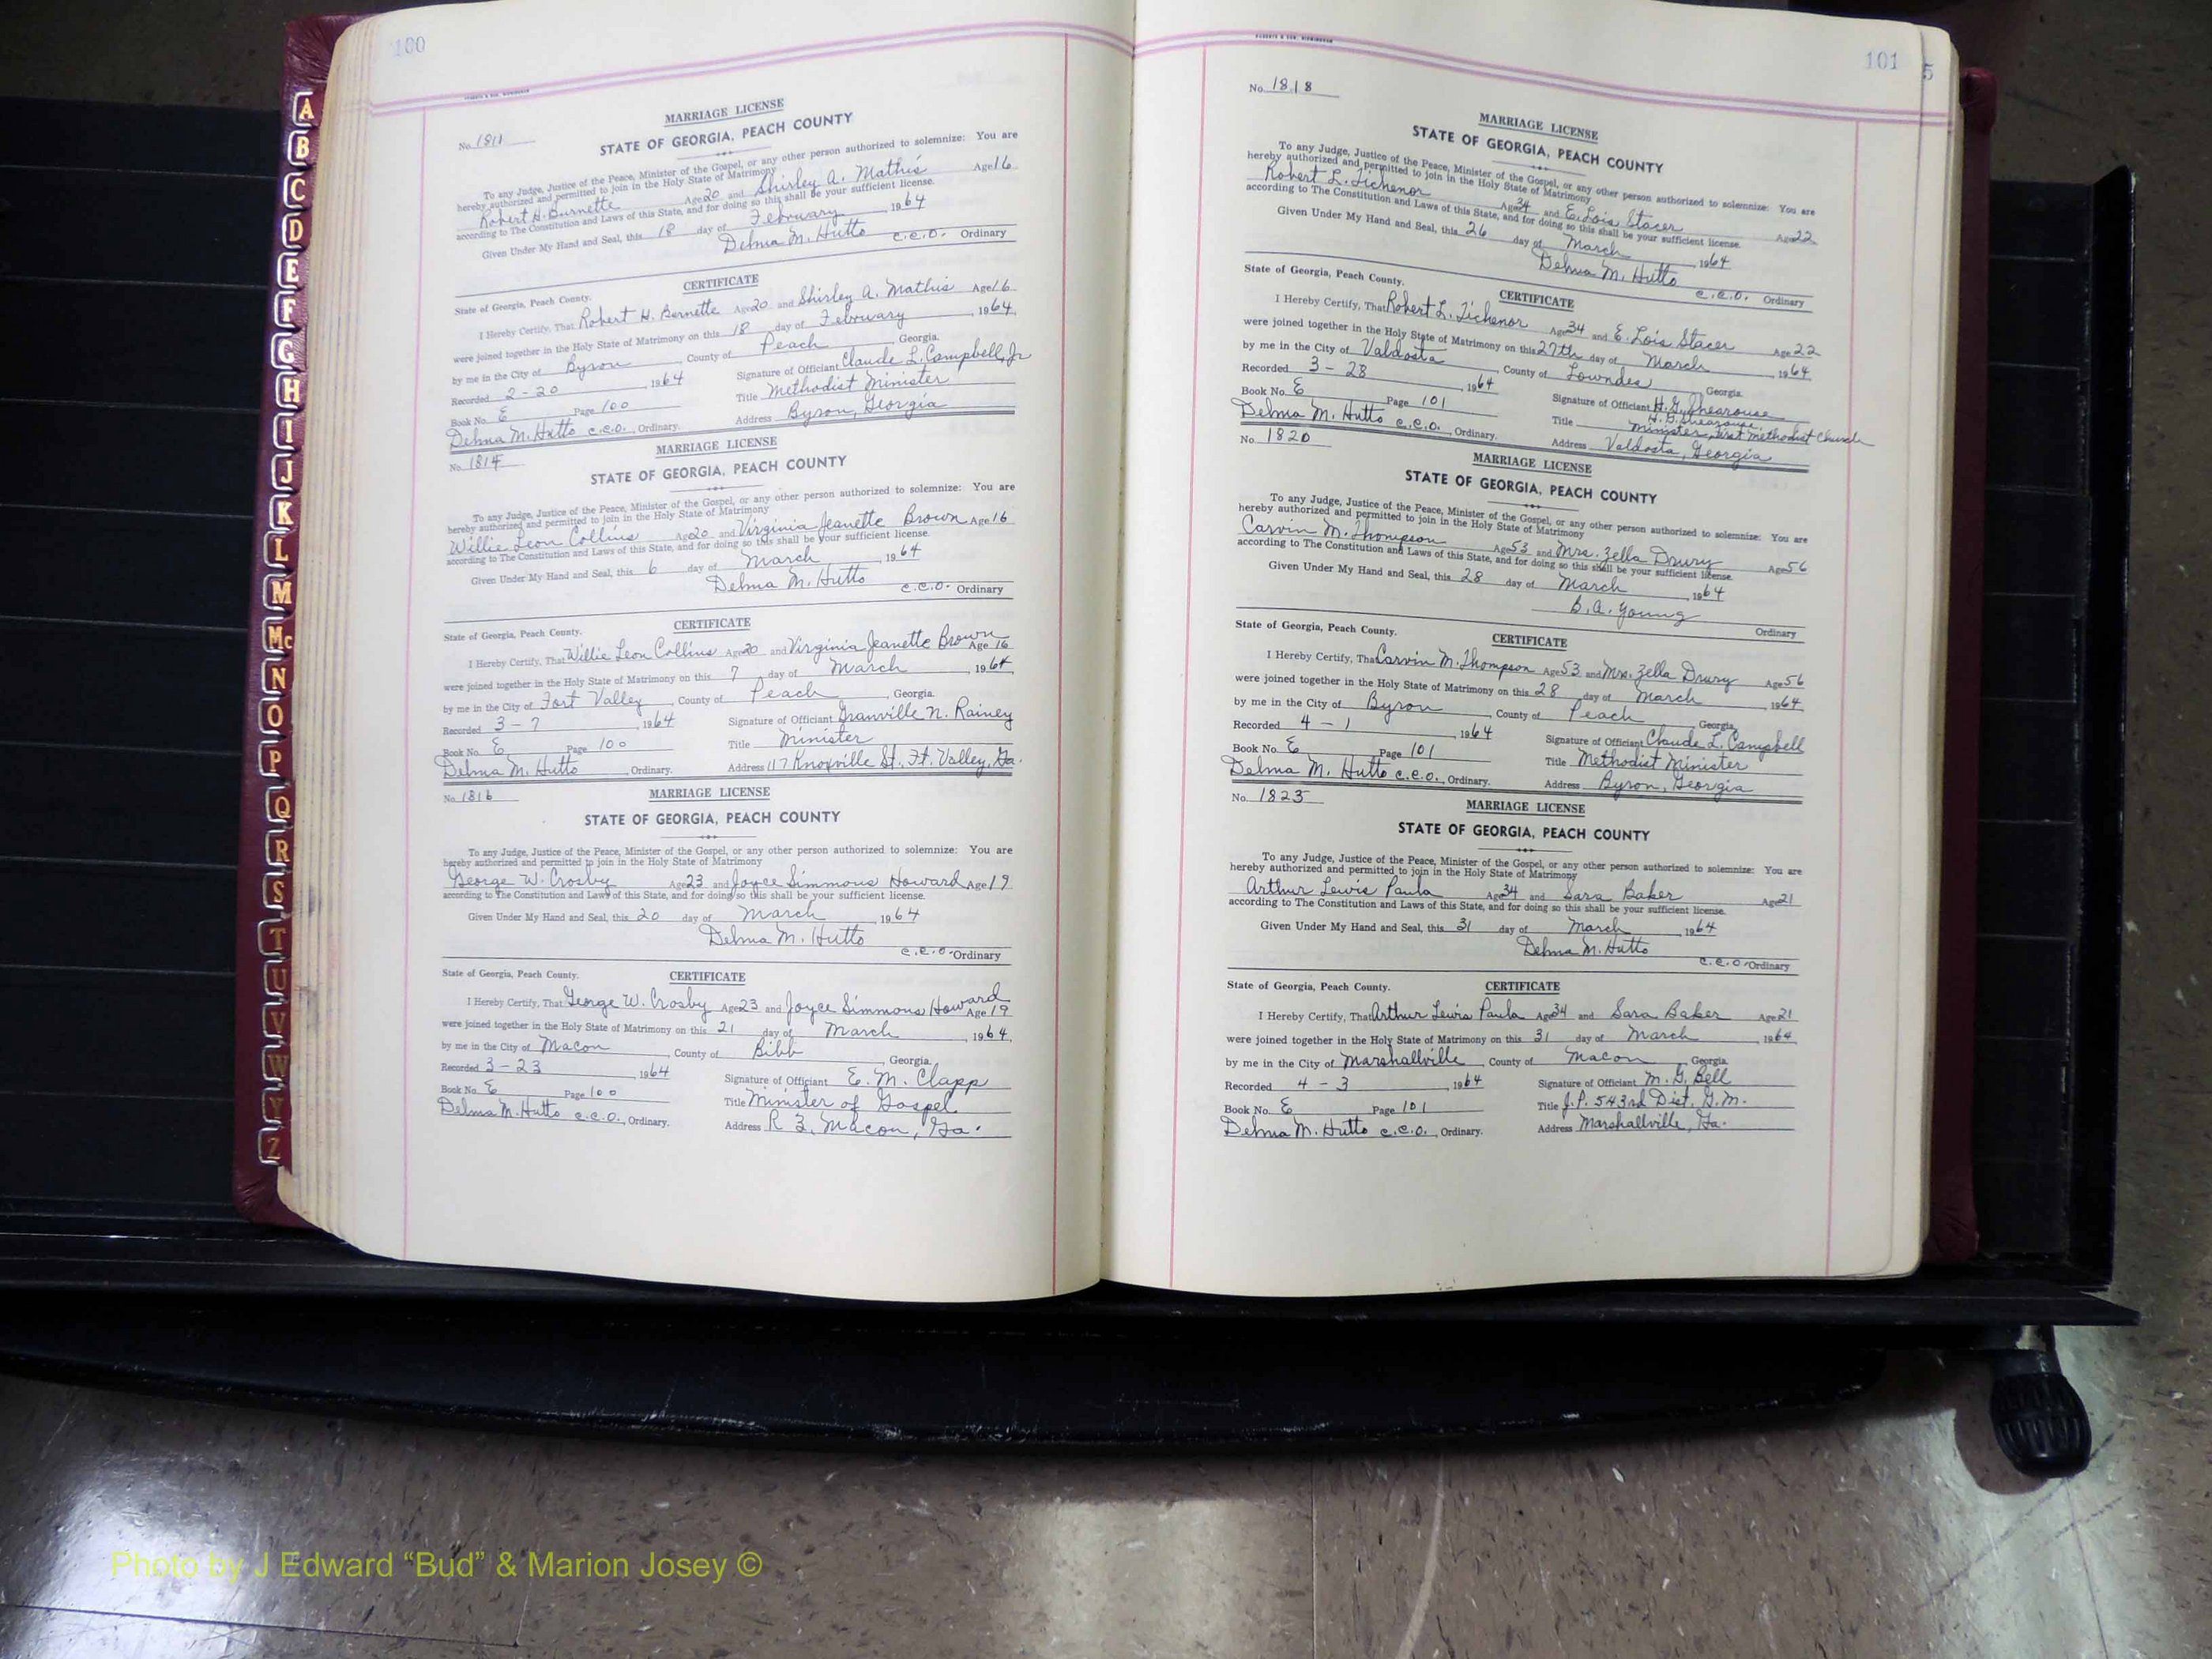 A
B
C
D
E
F
G
H
I
J
K
L
M
Mc
N
O
P
Q
R
S
T
U
V
W
Y
Z
100
MARRIAGE LICENSE
No. 1811
STATE OF GEORGIA, PEACH COUNTY
To any Judge, Justice of the Peace, Minister of the Gospel, or any other person authorized to solemnize: You are
hereby authorized and permitted to join in the Holy State of Matrimony
Robert H. Burnette Age 20 and Shirley A. Mathis Age 16
according to The Constitution and Laws of this State, and for doing so this shall be your sufficient license.
Given Under My Hand and Seal, this 18 day of February, 1964
Delma M. Hutto C.C.O. Ordinary
CERTIFICATE
State of Georgia, Peach County.
I Hereby Certify, That Robert H. Burnette Age 20 and Shirley A. Mathis Age 16
were joined together in the Holy State of Matrimony on this 18 day of February, 1964,
by me in the City of Byron, County of Peach, Georgia.
Recorded 2-20, 1964 Signature of Officiant Claude L. Campbell, Jr
Book No. E Page 100 Title Methodist Minister
Delma M. Hutto C.C.O., Ordinary. Address Byron, Georgia
MARRIAGE LICENSE
No. 1814
STATE OF GEORGIA, PEACH COUNTY
To any Judge, Justice of the Peace, Minister of the Gospel, or any other person authorized to solemnize: You are
hereby authorized and permitted to join in the Holy State of Matrimony
Willie Leon Collins Age 20 and Virginia Jeanette Brown Age 16
according to The Constitution and Laws of this State, and for doing so this shall be your sufficient license.
Given Under My Hand and Seal, this 6 day of March, 1964
Delma M. Hutto C.C.O. Ordinary
CERTIFICATE
State of Georgia, Peach County.
I Hereby Certify, That Willie Leon Collins Age 20 and Virginia Jeanette Brown Age 16
were joined together in the Holy State of Matrimony on this 7 day of March, 1964,
by me in the City of Fort Valley, County of Peach, Georgia.
Recorded 3-7, 1964 Signature of Officiant Granville N. Rainey
Book No. E Page 100 Title Minister
Delma M. Hutto, Ordinary. Address 117 Knoxville St., Ft. Valley, Ga.
No. 1816 MARRIAGE LICENSE
STATE OF GEORGIA, PEACH COUNTY
To any Judge, Justice of the Peace, Minister of the Gospel, or any other person authorized to solemnize: You are
hereby authorized and permitted to join in the Holy State of Matrimony
George W. Crosby Age 23 and Joyce Simmons Howard Age 19
according to The Constitution and Laws of this State, and for doing so this shall be your sufficient license.
Given Under My Hand and Seal, this 20 day of March, 1964
Delma M. Hutto C.C.O. Ordinary
State of Georgia, Peach County. CERTIFICATE
I Hereby Certify, That George W. Crosby Age 23 and Joyce Simmons Howard Age 19
were joined together in the Holy State of Matrimony on this 21 day of March, 1964,
by me in the City of Macon, County of Bibb, Georgia.
Recorded 3-23, 1964 Signature of Officiant E. M. Clapp
Book No. E Page 100 Title Minister of Gospel
Delma M. Hutto C.C.O., Ordinary. Address R 3, Macon, Ga.
101
5
No. 1818
MARRIAGE LICENSE
STATE OF GEORGIA, PEACH COUNTY
To any Judge, Justice of the Peace, Minister of the Gospel, or any other person authorized to solemnize: You are
hereby authorized and permitted to join in the Holy State of Matrimony
Robert L. Tichenor Age 34 and E. Lois Stacer Age 22
according to The Constitution and Laws of this State, and for doing so this shall be your sufficient license.
Given Under My Hand and Seal, this 26 day of March, 1964
Delma M. Hutto C.C.O. Ordinary
State of Georgia, Peach County. CERTIFICATE
I Hereby Certify, That Robert L. Tichenor Age 34 and E. Lois Stacer Age 22
were joined together in the Holy State of Matrimony on this 27th day of March, 1964,
by me in the City of Valdosta, County of Lowndes, Georgia.
Recorded 3-28, 1964 Signature of Officiant H. G. Shearouse
H. G. Shearouse
Book No. E Page 101 Title Minister, First Methodist Church
Delma M. Hutto C.C.O., Ordinary. Address Valdosta, Georgia
No. 1820
MARRIAGE LICENSE
STATE OF GEORGIA, PEACH COUNTY
To any Judge, Justice of the Peace, Minister of the Gospel, or any other person authorized to solemnize: You are
hereby authorized and permitted to join in the Holy State of Matrimony
Carvin M. Thompson Age 53 and Mrs. Zella Drury Age 56
according to The Constitution and Laws of this State, and for doing so this shall be your sufficient license.
Given Under My Hand and Seal, this 28 day of March, 1964
B. A. Young Ordinary
State of Georgia, Peach County. CERTIFICATE
I Hereby Certify, That Carvin M. Thompson Age 53 and Mrs. Zella Drury Age 56
were joined together in the Holy State of Matrimony on this 28 day of March, 1964,
by me in the City of Byron, County of Peach, Georgia.
Recorded 4-1, 1964 Signature of Officiant Claude L. Campbell
Book No. E Page 101 Title Methodist Minister
Delma M. Hutto C.C.O., Ordinary. Address Byron, Georgia
No. 1823
MARRIAGE LICENSE
STATE OF GEORGIA, PEACH COUNTY
To any Judge, Justice of the Peace, Minister of the Gospel, or any other person authorized to solemnize: You are
hereby authorized and permitted to join in the Holy State of Matrimony
Arthur Lewis Paula Age 34 and Sara Baker Age 21
according to The Constitution and Laws of this State, and for doing so this shall be your sufficient license.
Given Under My Hand and Seal, this 31 day of March, 1964
Delma M. Hutto C.C.O. Ordinary
State of Georgia, Peach County. CERTIFICATE
I Hereby Certify, That Arthur Lewis Paula Age 34 and Sara Baker Age 21
were joined together in the Holy State of Matrimony on this 31 day of March, 1964,
by me in the City of Marshallville, County of Macon, Georgia.
Recorded 4-3, 1964 Signature of Officiant M. G. Bell
Book No. E Page 101 Title J.P. 543rd Dist. G.M.
Delma M. Hutto C.C.O., Ordinary. Address Marshallville, Ga.
Photo by J Edward “Bud” & Marion Josey ©